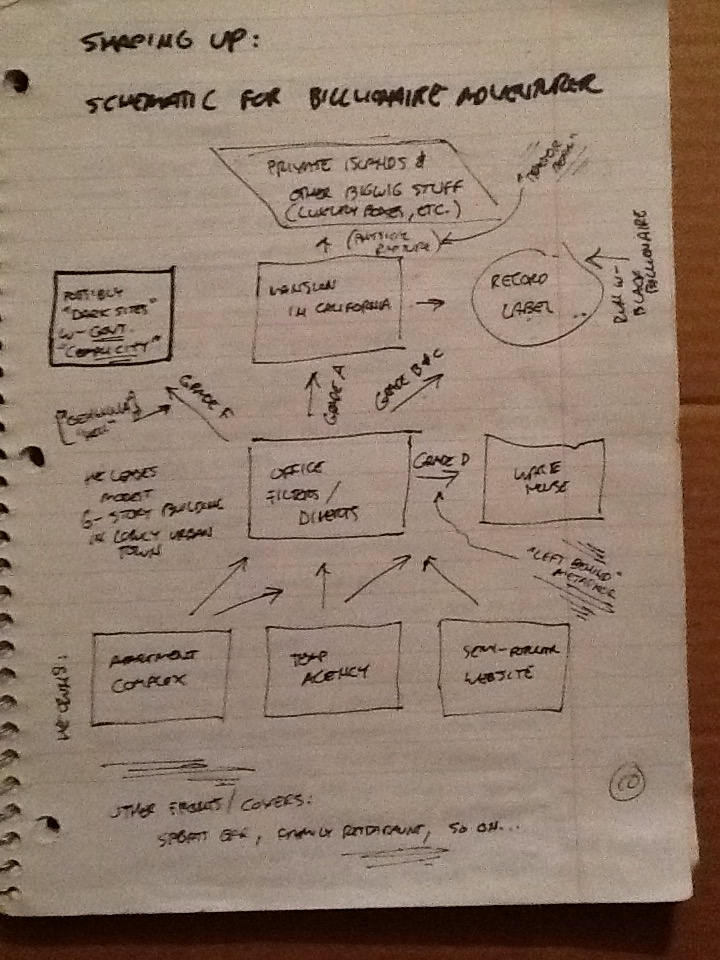 SHAPING UP:
SCHEMATIC FOR BILLIONAIRE ADVENTURER
PRIVATE ISLANDS &
OTHER BIGWIG STUFF
(LUXURY BOXES, ETC.)
RAPTURE)
POSSIBLY
"DARK SITES"
W- GOVT.
"COMPLICITY"
MANSION
IN CALIFORNIA
RECORD
LABEL
RUN W-
BLACK BILLIONAIRE
GRADE F
GRADE A
GRADE B & C
"HELL"
HE LEASES
MODEST
6-STORY BUILDING
IN LOWLY URBAN
TOWN
OFFICE
FILTERS/
DIVERTS
GRADE D
HOUSE
"LEFT BEHIND"
METAPHOR
HE OWNS:
APARTMENT
COMPLEX
TEMP
AGENCY
SEMI-POPULAR
WEBSITE
OTHER FRONTS/COVERS:
SPORTS BAR, FAMILY RESTAURANT, SO ON...